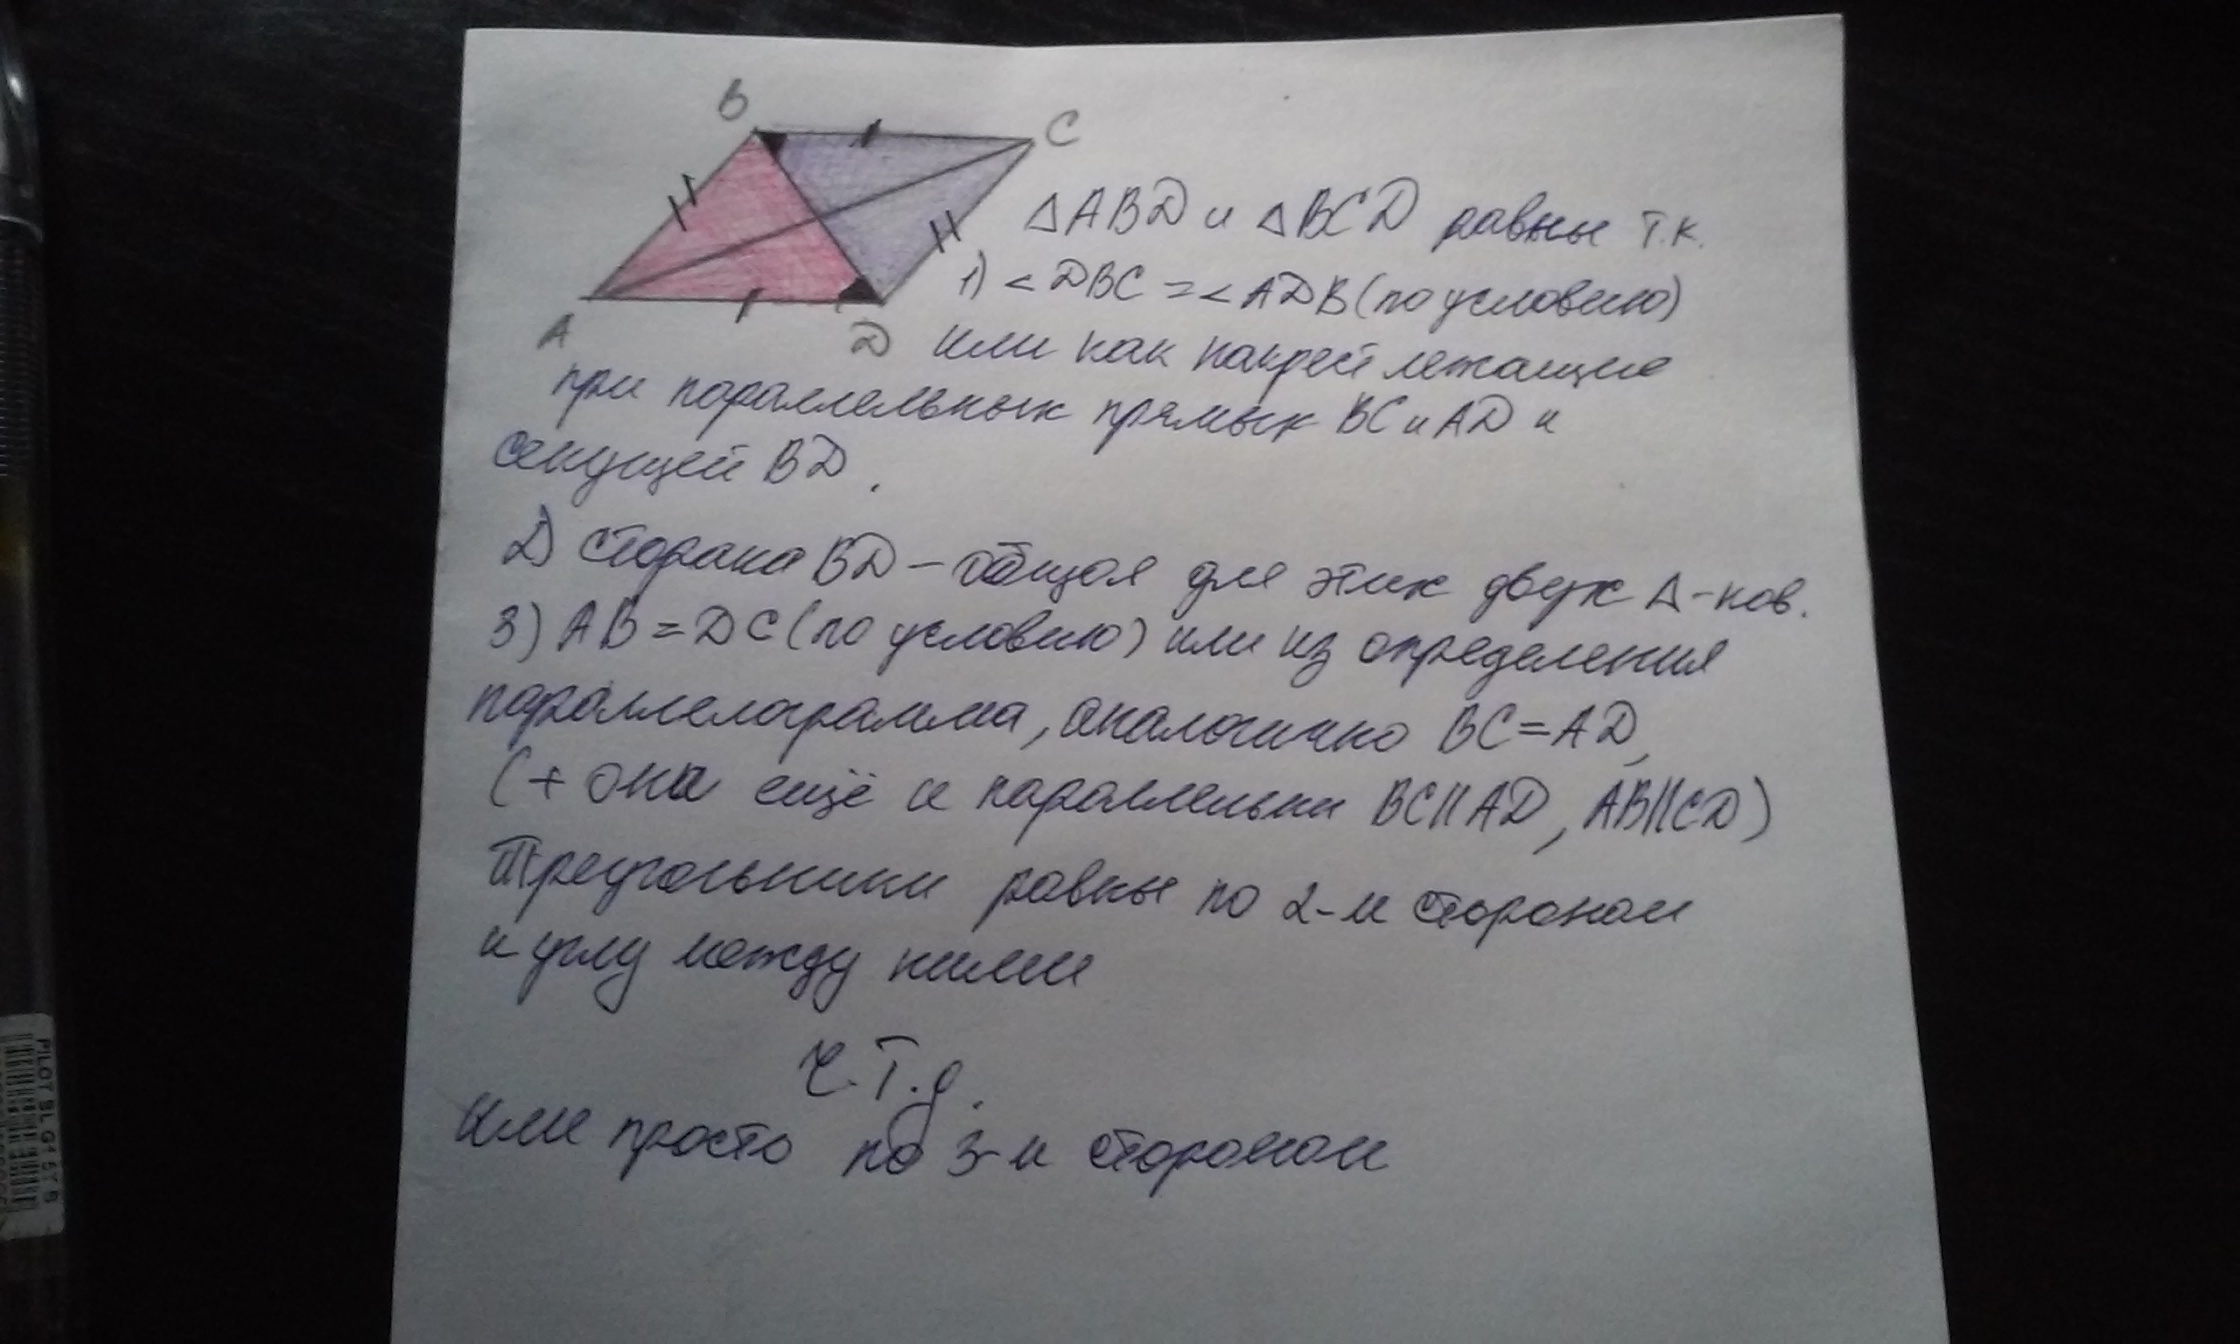 B
C
A
D
△ABD и △BCD равны т.к.
1) <DBC = <ADB (по условию)
или как накрей лежащие
при параллельных прямых BC и AD и
секущей BD.
2) сторона BD – общая для этих двух △-ков.
3) AB = DC (по условию) или из определения
параллелограмма, аналогично BC = AD,
(+ они ещё и параллельны BC||AD, AB||CD)
Треугольники равны по 2-м сторонам
и углу между ними
Ч.Т.д.
или просто по 3-м сторонам
PILOT SL G1 5Y B